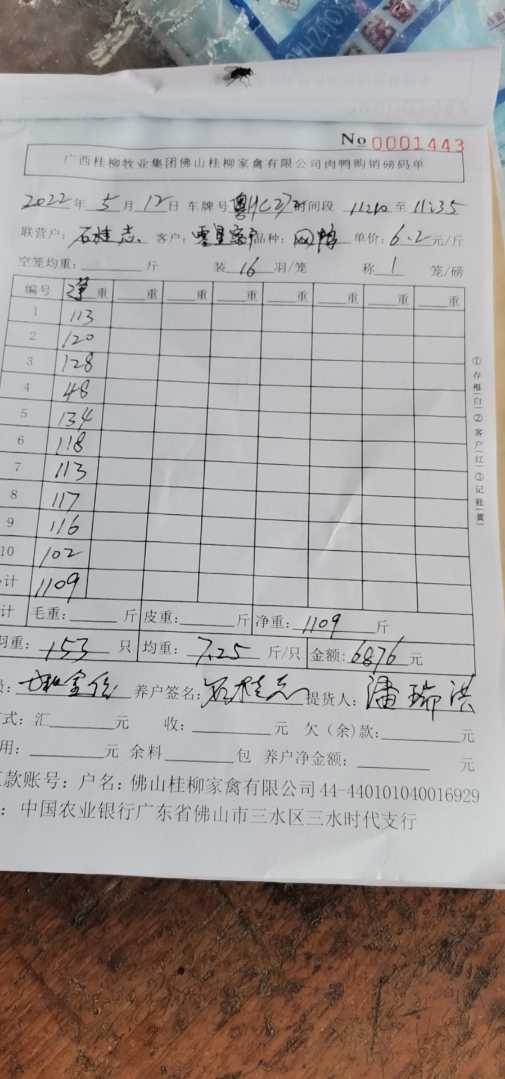 № 0001443
广西桂柳牧业集团佛山桂柳家禽有限公司肉鸭购销磅码单
2022 年 5 月 12 日 车牌号 时间段 至 11:35
联营户: 石桂志 客户: 零星客户 品种: 单价: 6.2 元/斤
空笼均重: 斤 装 16 羽/笼 称 1 笼/磅
编号 净重 重 重 重 重 重 重
1 113
2 120
3 128
4 48
5 134
6 118
7 113
8 117
9 116
10 102
计 1109
计 毛重: 斤 皮重: 斤 净重: 1109 斤
羽重: 153 只 均重: 7.25 斤/只 金额: 6876 元
养户签名: 石桂志 提货人: 潘瑞洪
式: 汇 元 收: 元 欠(余)款: 元
用: 元 余料 包 养户净金额: 元
款账号: 户名: 佛山桂柳家禽有限公司 44-440101040016929
: 中国农业银行广东省佛山市三水区三水时代支行
①存根(白)②客户(红)③记账(黄)